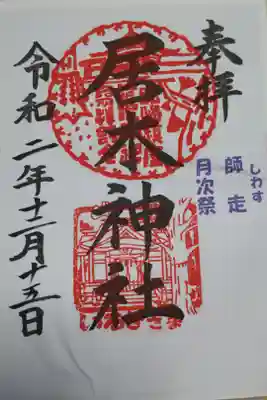 奉拝
しわす
師走
月次祭
居木神社
令和二年十二月十五日